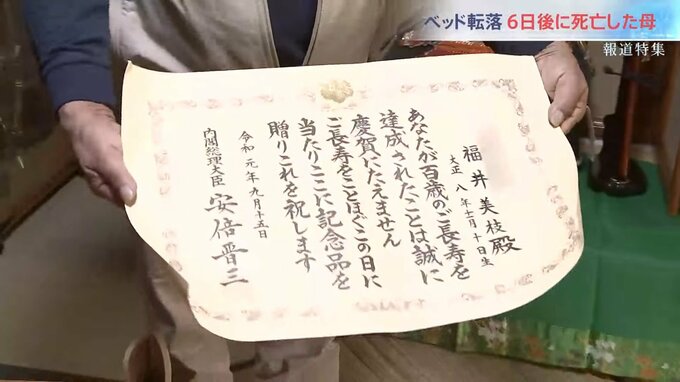 ベッド転落 6日後に死亡した母
報道特集
福井美枝殿
大正八年十一月十日生
あなたが百歳のご長寿を
達成されたことは誠に
慶賀にたえません
ご長寿をことほぐこの日に
当たりここに記念品を
贈りこれを祝します
令和元年九月十五日
内閣総理大臣 安倍晋三